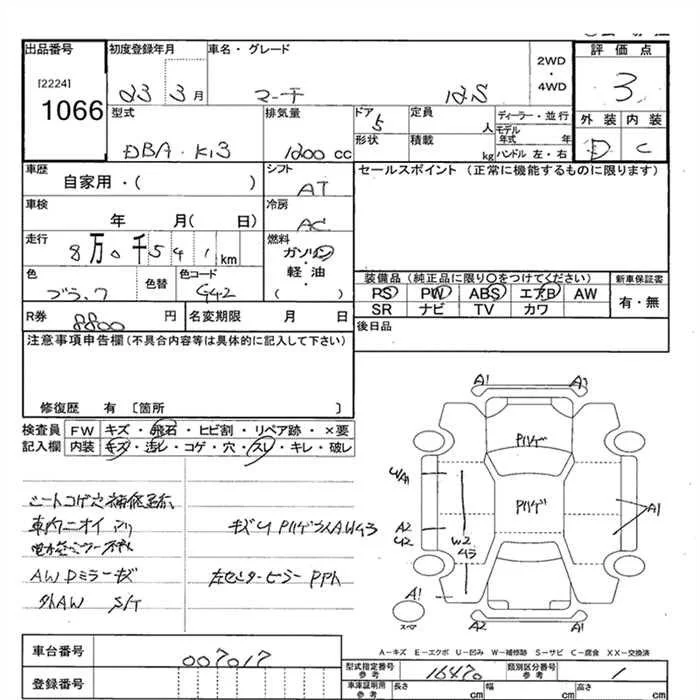 出品番号 初度登録年月 車名・グレード 2WD ・ 4WD 評価点
[2224]
1066
23 3月 マーチ 12S 3
型式 排気量 ドア 定員 ディーラー・並行 外装 内装
DBA・K13 1200 cc 5 人 モデル年式 年 D C
形状 積載 kg ハンドル 左・右
車歴 シフト セールスポイント (正常に機能するものに限ります)
自家用・( ) AT
車検 冷房
年 月( 日) AC
走行 燃料
8万0千541km ガソリン・軽油・( )
色 色替 色コード 装備品 (純正品に限り○をつけてください) 新車保証書
G42 PS PW ABS エアB AW 有・無
SR ナビ TV カワ
R券 8800 円 名変期限 月 日 後日品
注意事項申告欄 (不具合内容等は具体的に記入して下さい)
修復歴 有 〔箇所 〕
検査員 FW キズ・飛石・ヒビ割・リペア跡・×要
記入欄 内装 キズ・汚レ・コゲ・穴・スレ・キレ・破レ
シートコゲ穴補修跡
車内ニオイアリ
AWDミラーキズ
外AW S/T
A1 A3
Pハゲ
Pハゲ
A1
A2
W2
A1
スペア
A2 A1
A-キズ E-エクボ U-凹み W-補修跡 S-サビ C-腐食 XX-交換済
車台番号 007017
登録番号
型式指定番号 参考 16470 類別区分番号 参考 1
車庫証明用 参考 長さ cm 幅 cm 高さ cm